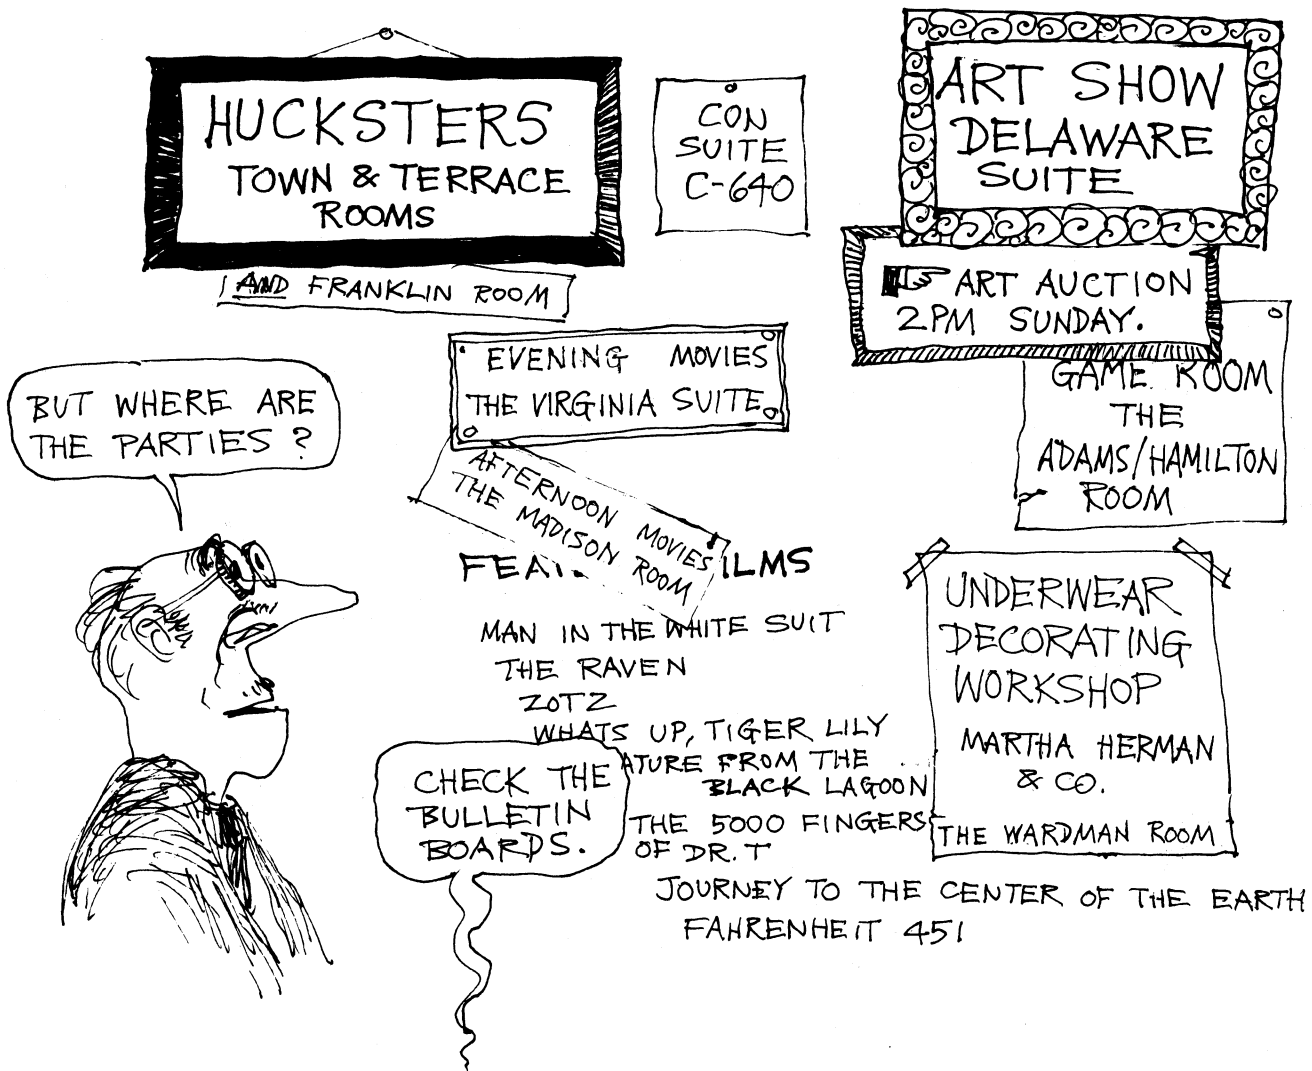 HUCKSTERS
TOWN & TERRACE
ROOMS
AND FRANKLIN ROOM
CON
SUITE
C-640
ART SHOW
DELAWARE
SUITE
ART AUCTION
2PM SUNDAY.
GAME ROOM
THE
ADAMS/HAMILTON
ROOM
EVENING MOVIES
THE VIRGINIA SUITE
AFTERNOON MOVIES
THE MADISON ROOM
BUT WHERE ARE
THE PARTIES?
FEA ILMS
MAN IN THE WHITE SUIT
THE RAVEN
ZOTZ
WHATS UP, TIGER LILY
ATURE FROM THE
BLACK LAGOON
THE 5000 FINGERS
OF DR. T
JOURNEY TO THE CENTER OF THE EARTH
FAHRENHEIT 451
CHECK THE
BULLETIN
BOARDS.
UNDERWEAR
DECORATING
WORKSHOP
MARTHA HERMAN
& CO.
THE WARDMAN ROOM